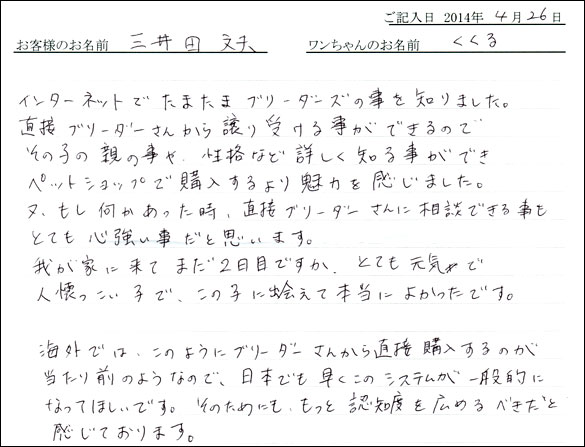 ご記入日 2014年 4月26日
お客様のお名前 三井田 文夫 ワンちゃんのお名前 くくる
インターネットでたまたまブリーダーズの事を知りました。
直接ブリーダーさんから譲り受ける事ができるので
その子の親の事や、性格など詳しく知る事ができ
ペットショップで購入するより魅力を感じました。
又、もし何かあった時、直接ブリーダーさんに相談できる事も
とても心強い事だと思います。
我が家に来てまだ2日目ですが、とても元気で
人懐っこい子で、この子に会えて本当によかったです。
海外では、このようにブリーダーさんから直接購入するのが
当たり前のようなので、日本でも早くこのシステムが一般的に
なってほしいです。そのためにも、もっと認知度を広めるべきだと
感じております。